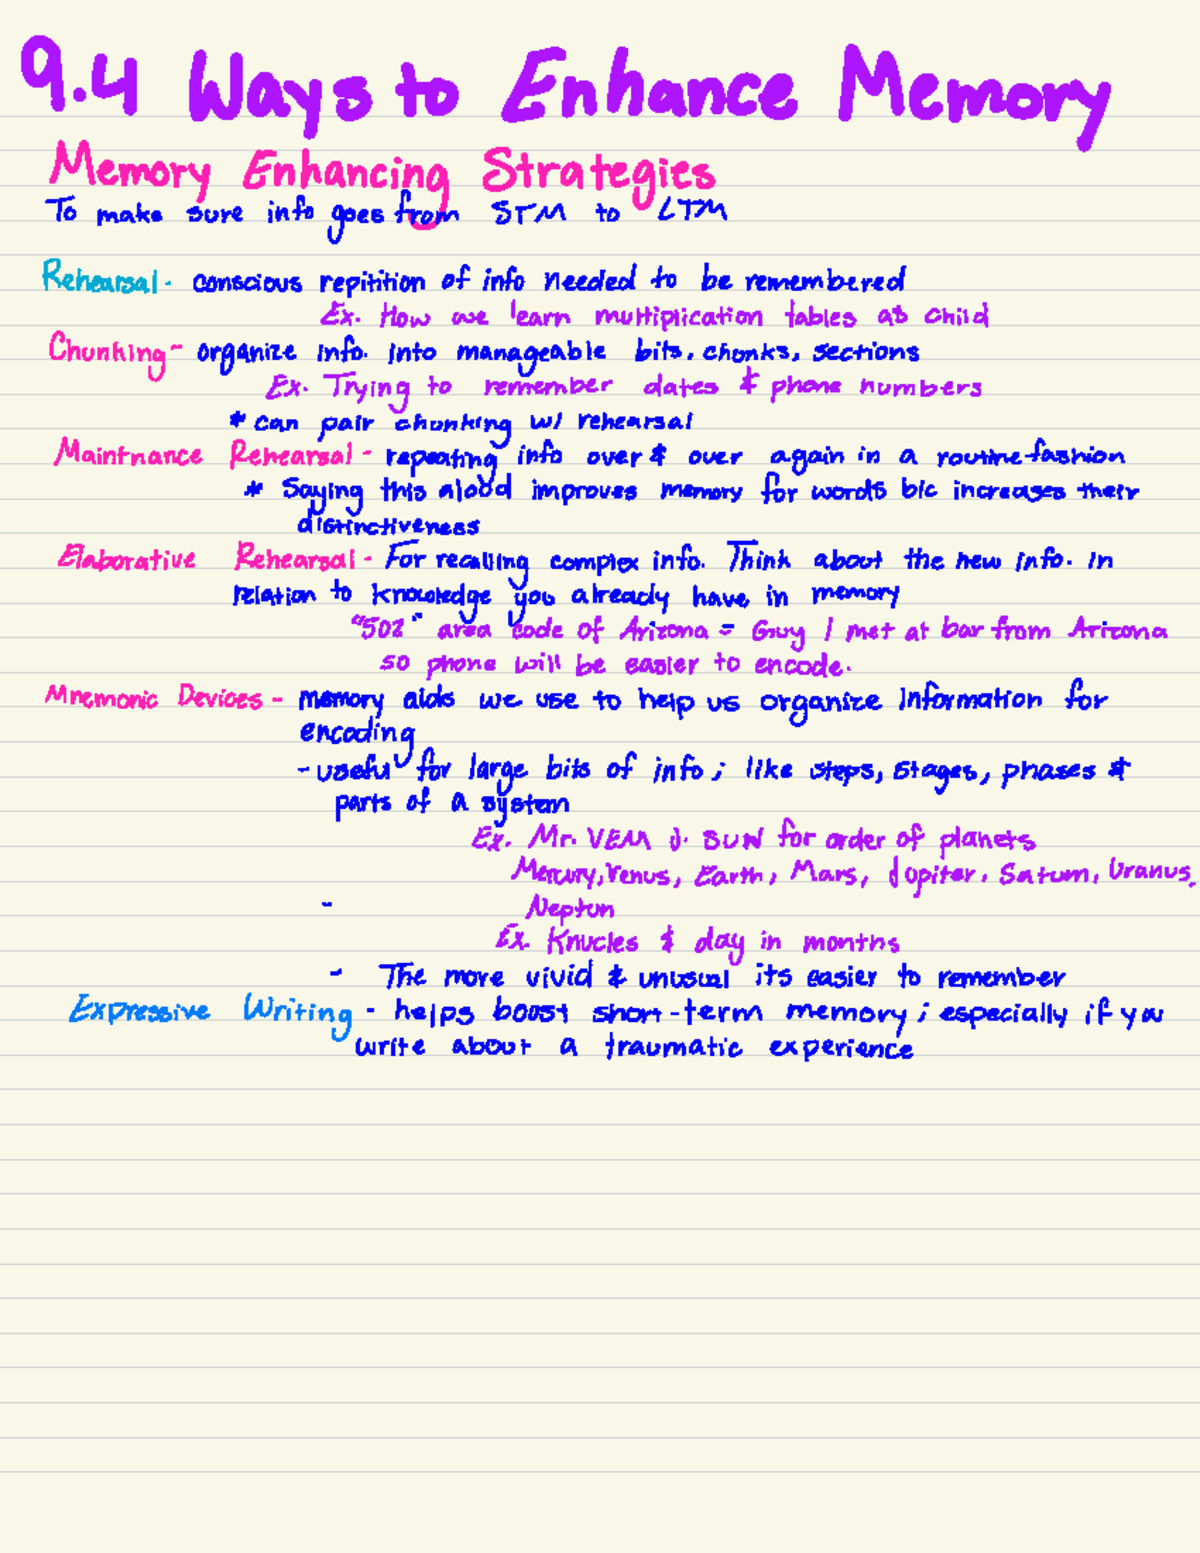 9.4 Ways to Enhance Memory
Memory Enhancing Strategies
To make sure info goes from STM to LTM
Rehearsal - conscious repitition of info needed to be remembered
Ex. How we learn multiplication tables as child
Chunking - organize info. into manageable bits, chunks, sections
Ex. Trying to remember dates & phone numbers
* can pair chunking w/ rehearsal
Maintnance Rehearsal - repeating info over & over again in a routine fashion
* Saying this aloud improves memory for words b/c increases their
distinctiveness
Elaborative Rehearsal - For recalling complex info. Think about the new info. in
relation to knowledge you already have in memory
"502" area code of Arizona = Guy I met at bar from Arizona
so phone will be easier to encode.
Mnemonic Devices - memory aids we use to help us organize information for
encoding
- useful for large bits of info ; like steps, stages, phases &
parts of a system
Ex. Mr. VEM J. SUN for order of planets
Mercury, Venus, Earth, Mars, Jupiter, Saturn, Uranus,
- Neptun
Ex. Knucles & day in months
- The more vivid & unusual its easier to remember
Expressive Writing - helps boost short-term memory ; especially if you
write about a traumatic experience